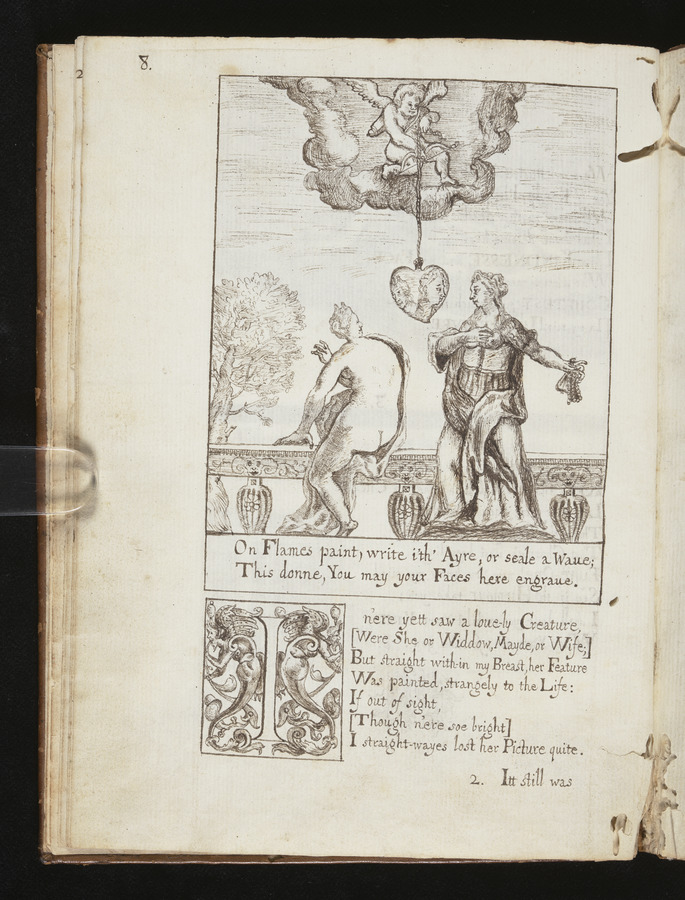 8.
2
On Flames paint, write i'th' Ayre, or seale a Waue;
This donne, You may your Faces here engraue.
I n'ere yett saw a loue-ly Creature,
[Were She or Widdow, Mayde, or Wife;]
But straight with-in my Breast, her Feature
Was painted, strangely to the Life:
If out of sight,
[Though n'ere soe bright]
I straight-wayes lost her Picture quite.
2. Itt still was